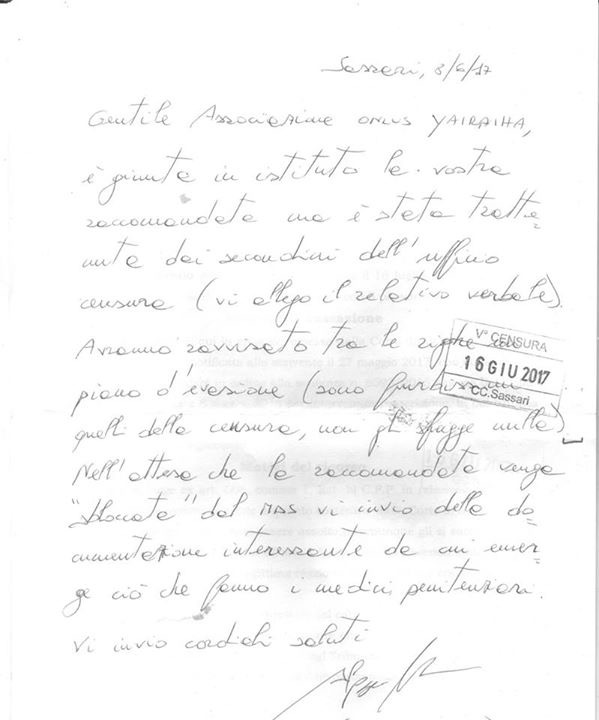 Sassari, 8/6/17
Gentile Associazione ONLUS YAIRAIHA,
è giunta in istituto la vostra
raccomandata ma è stata tratte=
nuta dai secondini dell'ufficio
censura (vi allego il relativo verbale).
Avranno ravvisato tra le righe un
piano d'evasione (sono furbissimi
quelli della censura, non gli sfugge nulla)
Nell'attesa che la raccomandata venga
"sbloccata" dal MSS vi invio della do=
cumentazione interessante da cui emer=
ge ciò che fanno i medici penitenziari.
Vi invio cordiali saluti
V° CENSURA
16 GIU 2017
CC.Sassari